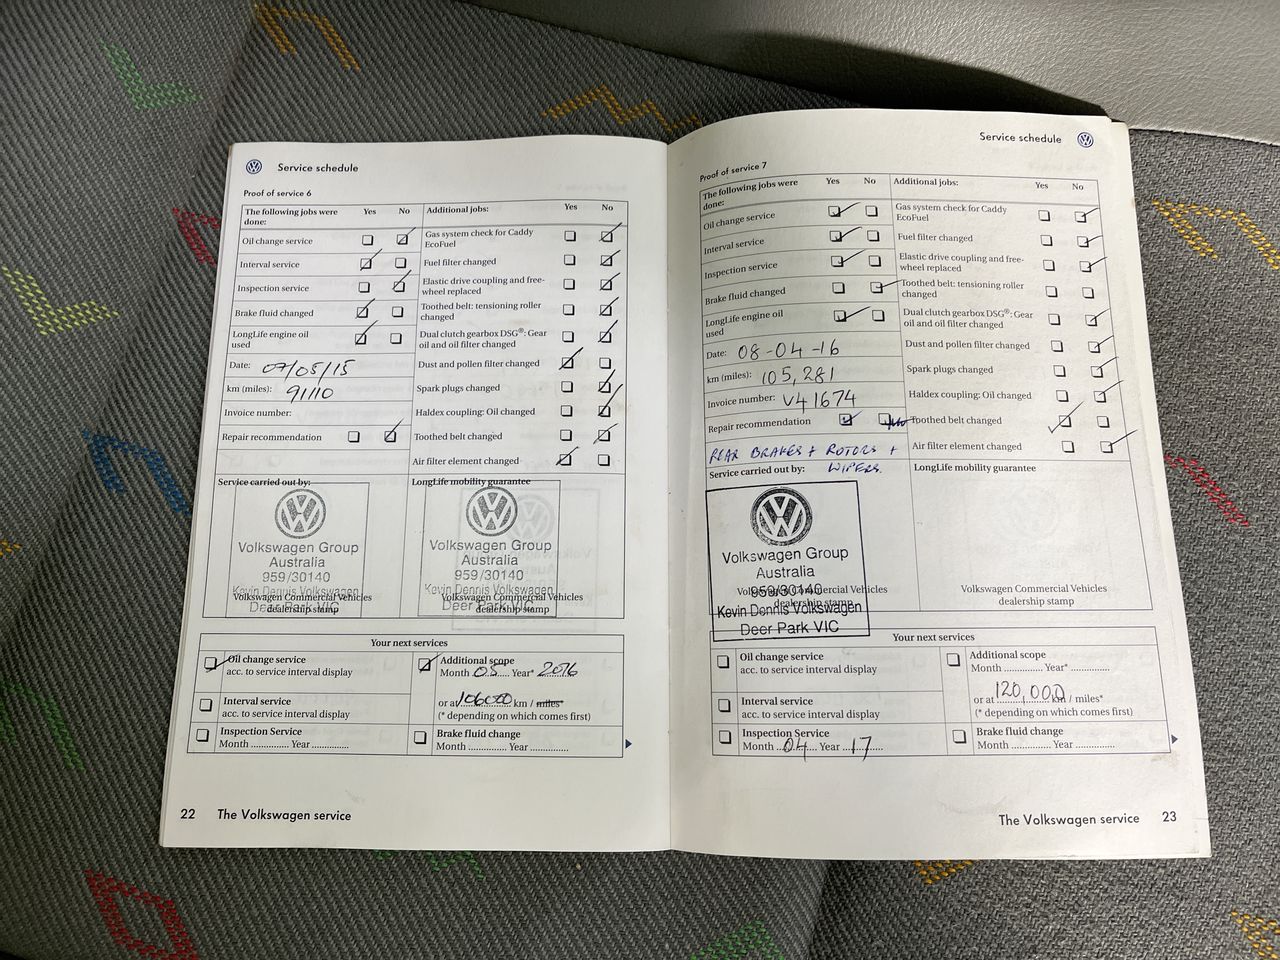 Service schedule
Proof of service 6
The following jobs were done: Yes No
Oil change service
Interval service
Inspection service
Brake fluid changed
LongLife engine oil used
Date: 07/05/15
km (miles): 91110
Invoice number:
Repair recommendation
Additional jobs: Yes No
Gas system check for Caddy EcoFuel
Fuel filter changed
Elastic drive coupling and free-
wheel replaced
Toothed belt: tensioning roller changed
Dual clutch gearbox DSG®: Gear
oil and oil filter changed
Dust and pollen filter changed
Spark plugs changed
Haldex coupling: Oil changed
Toothed belt changed
Air filter element changed
Service carried out by:
Volkswagen Group
Australia
959/30140
Kevin Dennis Volkswagen
Deer Park VIC
Volkswagen Commercial Vehicles
dealership stamp
LongLife mobility guarantee
Volkswagen Group
Australia
959/30140
Kevin Dennis Volkswagen
Deer Park VIC
Volkswagen Commercial Vehicles
dealership stamp
Your next services
Oil change service
acc. to service interval display
Interval service
acc. to service interval display
Inspection Service
Month ............ Year ............
Additional scope
Month 05 Year* 2016
or at 106000 km / miles*
(* depending on which comes first)
Brake fluid change
Month ............ Year ............
22 The Volkswagen service
Service schedule
Proof of service 7
The following jobs were
done: Yes No
Oil change service
Interval service
Inspection service
Brake fluid changed
LongLife engine oil
used
Date: 08-04-16
km (miles): 105,281
Invoice number: V41674
Repair recommendation
REAR BRAKES + ROTORS +
WIPERS.
Additional jobs: Yes No
Gas system check for Caddy
EcoFuel
Fuel filter changed
Elastic drive coupling and free-
wheel replaced
Toothed belt: tensioning roller
changed
Dual clutch gearbox DSG®: Gear
oil and oil filter changed
Dust and pollen filter changed
Spark plugs changed
Haldex coupling: Oil changed
Toothed belt changed
Air filter element changed
Service carried out by:
Volkswagen Group
Australia
959/30140
Kevin Dennis Volkswagen
Deer Park VIC
Volkswagen Commercial Vehicles
dealership stamp
LongLife mobility guarantee
Volkswagen Commercial Vehicles
dealership stamp
Your next services
Oil change service
acc. to service interval display
Interval service
acc. to service interval display
Inspection Service
Month 04 Year 17
Additional scope
Month ............ Year* ............
or at 120,000 km / miles*
(* depending on which comes first)
Brake fluid change
Month ............ Year ............
The Volkswagen service 23